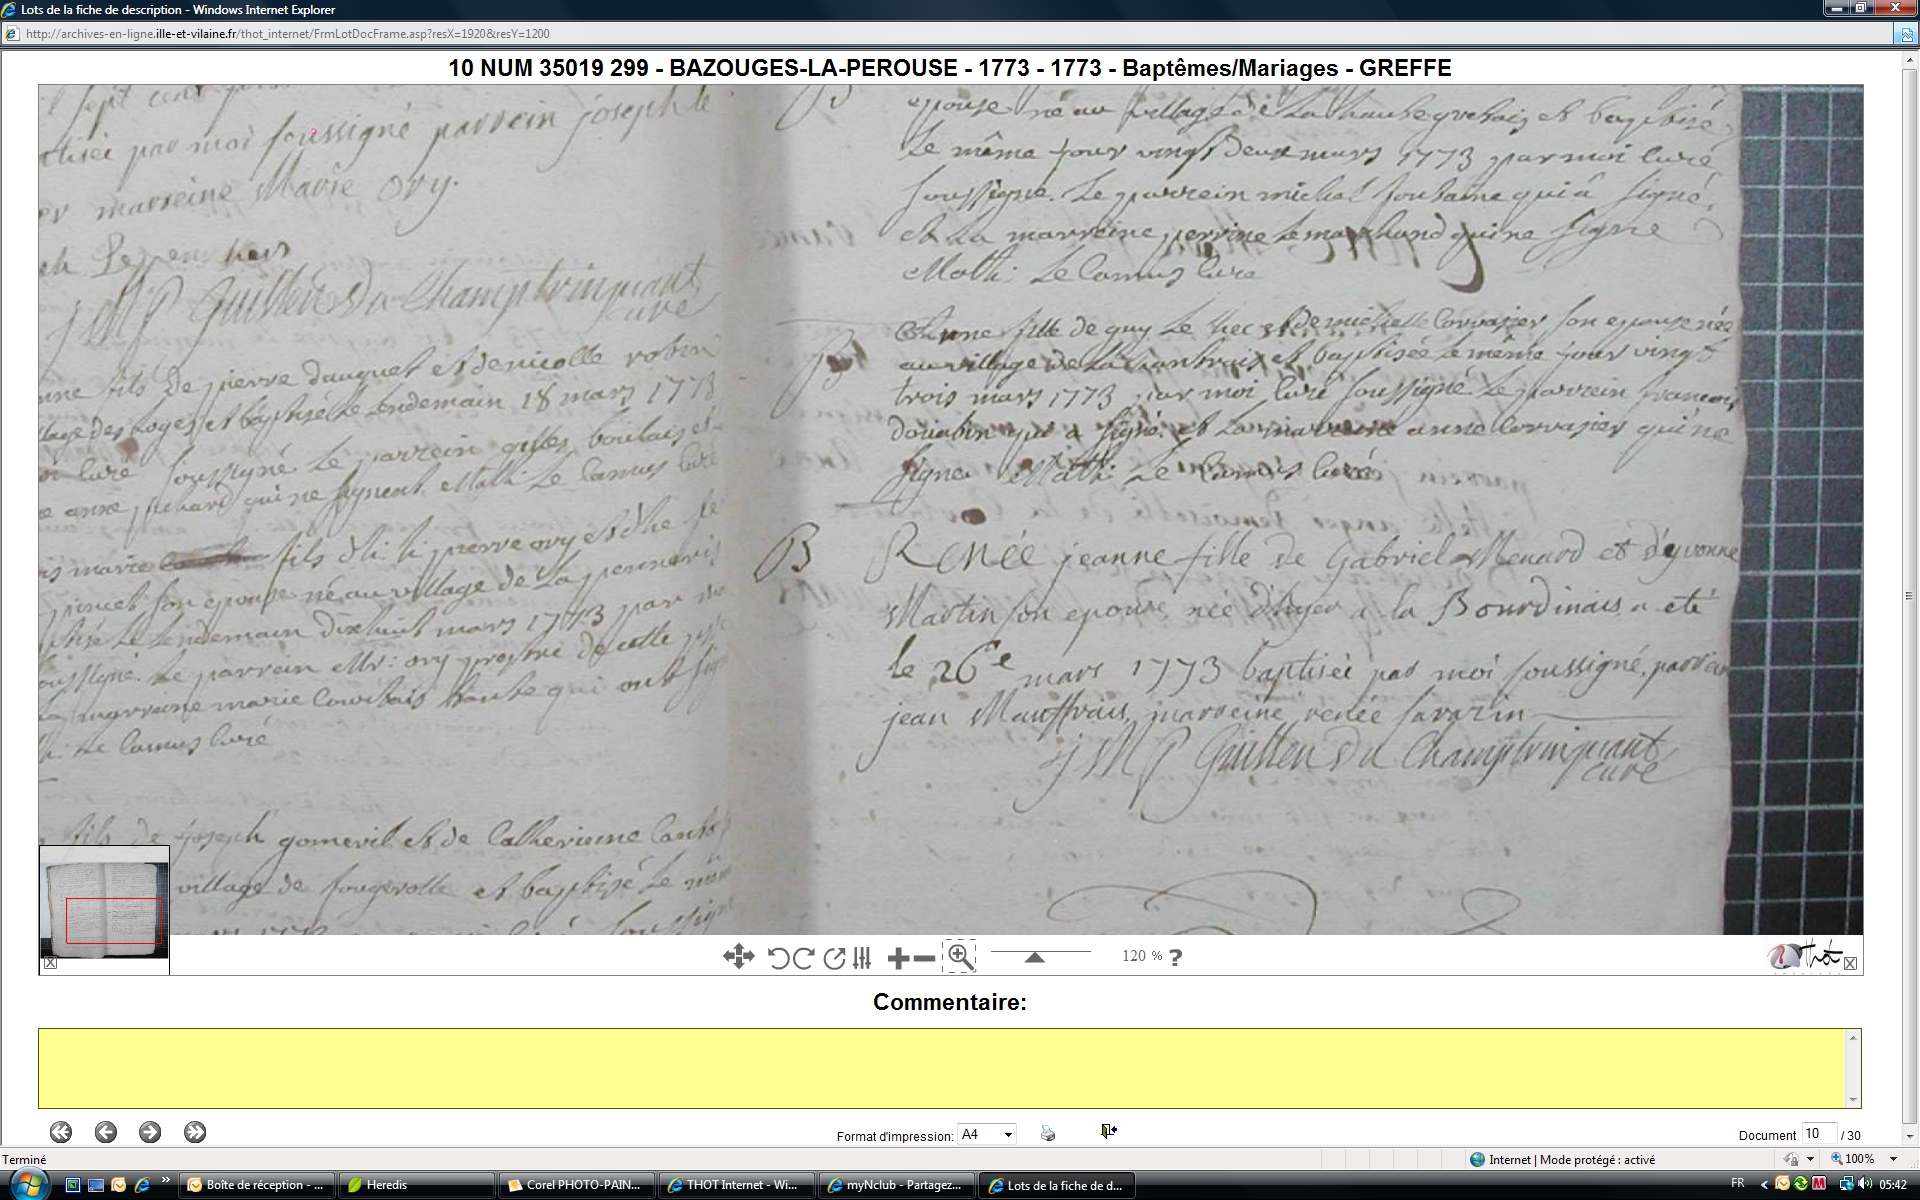 Lots de la fiche de description - Windows Internet Explorer
http://archives-en-ligne.ille-et-vilaine.fr/thot_internet/FrmLotDocFrame.asp?resX=1920&resY=1200
10 NUM 35019 299 - BAZOUGES-LA-PEROUSE - 1773 - 1773 - Baptêmes/Mariages - GREFFE
par moi soussigné parrein joseph le
marreine Marie Ory.
J M P Guillen du Champtrinquant
curé
fils de pierre dauguet et de nicolle robin
des loges et baptisé le lendemain 18 mars 1773
curé soussigné le parrein gilles boulais et
anne richard qui ne signent. Math: Le Camus curé
marie fils pierre ory et
son epouse né au village de la
le lendemain dixhuit mars 1773 par
soussigné. Le parrein ory de cette
la marreine marie qui ont
Le Camus curé
fils de joseph gomeril et de Catherinne
village de fougerolle et baptizé le
epouse né au village de et baptisé
le même jour vingt deux mars 1773 par moi curé
soussigné. Le parrein michel fontaine qui a signé,
et la marreine perrine Lemarchand qui ne signe
Math: Le Camus curé
B
fille de guy Le hec et de michelle Corvaisier son epouse née
au village de la et baptisée le même jour vingt
trois mars 1773 par moi curé soussigné Le parrein francois
qui a signé. et La marreine anne Corvaisier qui ne
signe. Math: Le Camus curé
B
Renée jeanne fille de Gabriel Menard et d'yvonne
Martin son epouse née d'hyer a la Bourdinais, a eté
le 26e mars 1773 baptisée par moi soussigné, parrein
jean Mauffrais, marreine renée Savazin
J M P Guillen du Champtrinquant
curé
120 % ?
Thot
Commentaire:
Format d'impression: A4
Document 10 / 30
Terminé
Internet | Mode protégé : activé
100%
Boîte de réception - ...
Heredis
Corel PHOTO-PAIN...
THOT Internet - Wi...
myNclub - Partagez...
Lots de la fiche de d...
FR
05:42